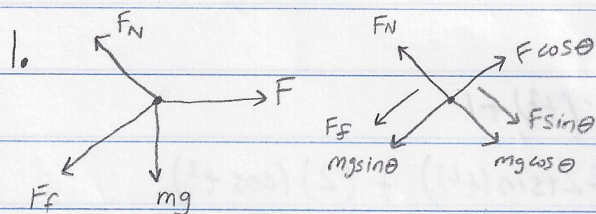 1.
F_N
F
F_f
mg
F_N
F cos θ
F_f
F sin θ
mg sin θ
mg cos θ